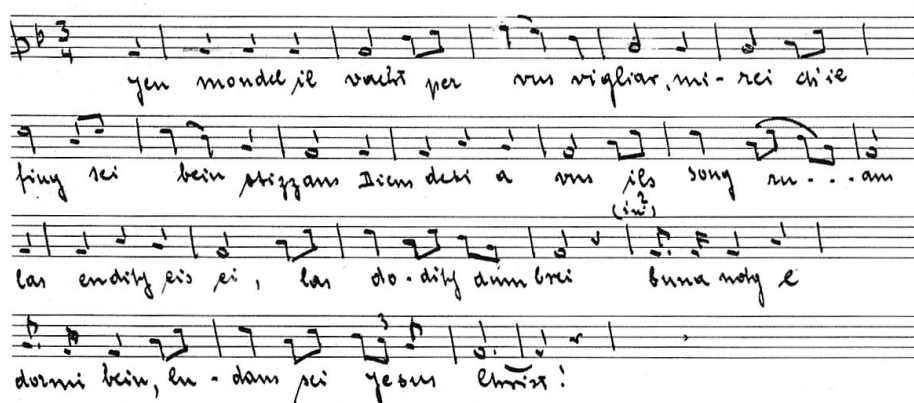 3 4
Jen mondel il vachi per vus vigliar, mi-rei ch'ie
fiug sei bein stizzaus Dieus deti a vus ils song ru---aus
(in?)
las endisch eis ei, las do-disch dumbrei buna notg e
3
dormi bein, lu-daus sei Jesus Christ!